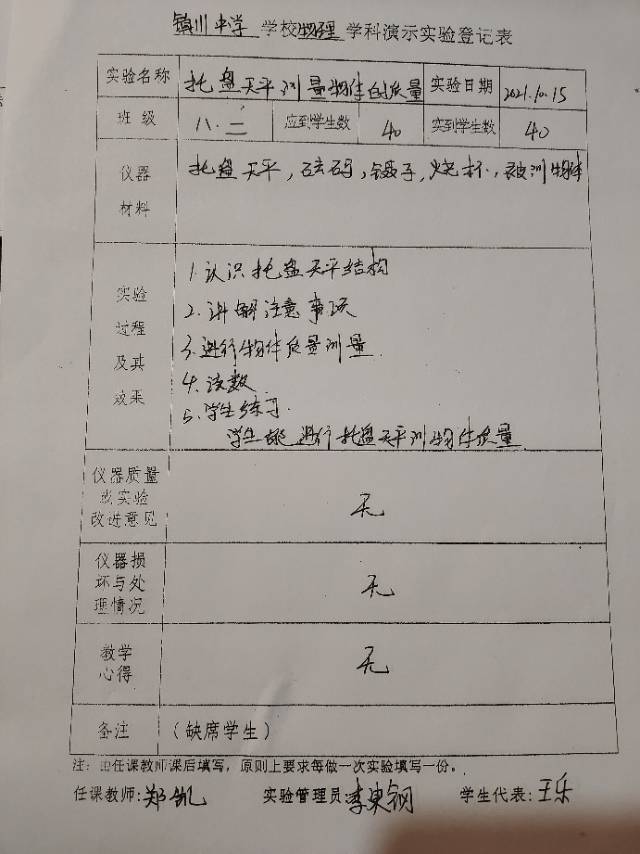 镇川中学 学校物理 学科演示实验登记表
实验名称 托盘天平测量物体的质量 实验日期 2021.10.15
班 级 八.二 应到学生数 40 实到学生数 40
仪器
材料
托盘天平,砝码,镊子,烧杯,被测物体
实验
过程
及其
效果
1.认识托盘天平结构
2.讲解注意事项
3.进行物体质量测量
4.读数
5.学生练习.
学生能进行托盘天平测物体质量
仪器质量
或实验
改进意见
无
仪器损
坏与处
理情况
无
教学
心得
无
备注 (缺席学生)
注:由任课教师课后填写,原则上要求每做一次实验填写一份。
任课教师:郑凯 实验管理员:李东钢 学生代表:王乐